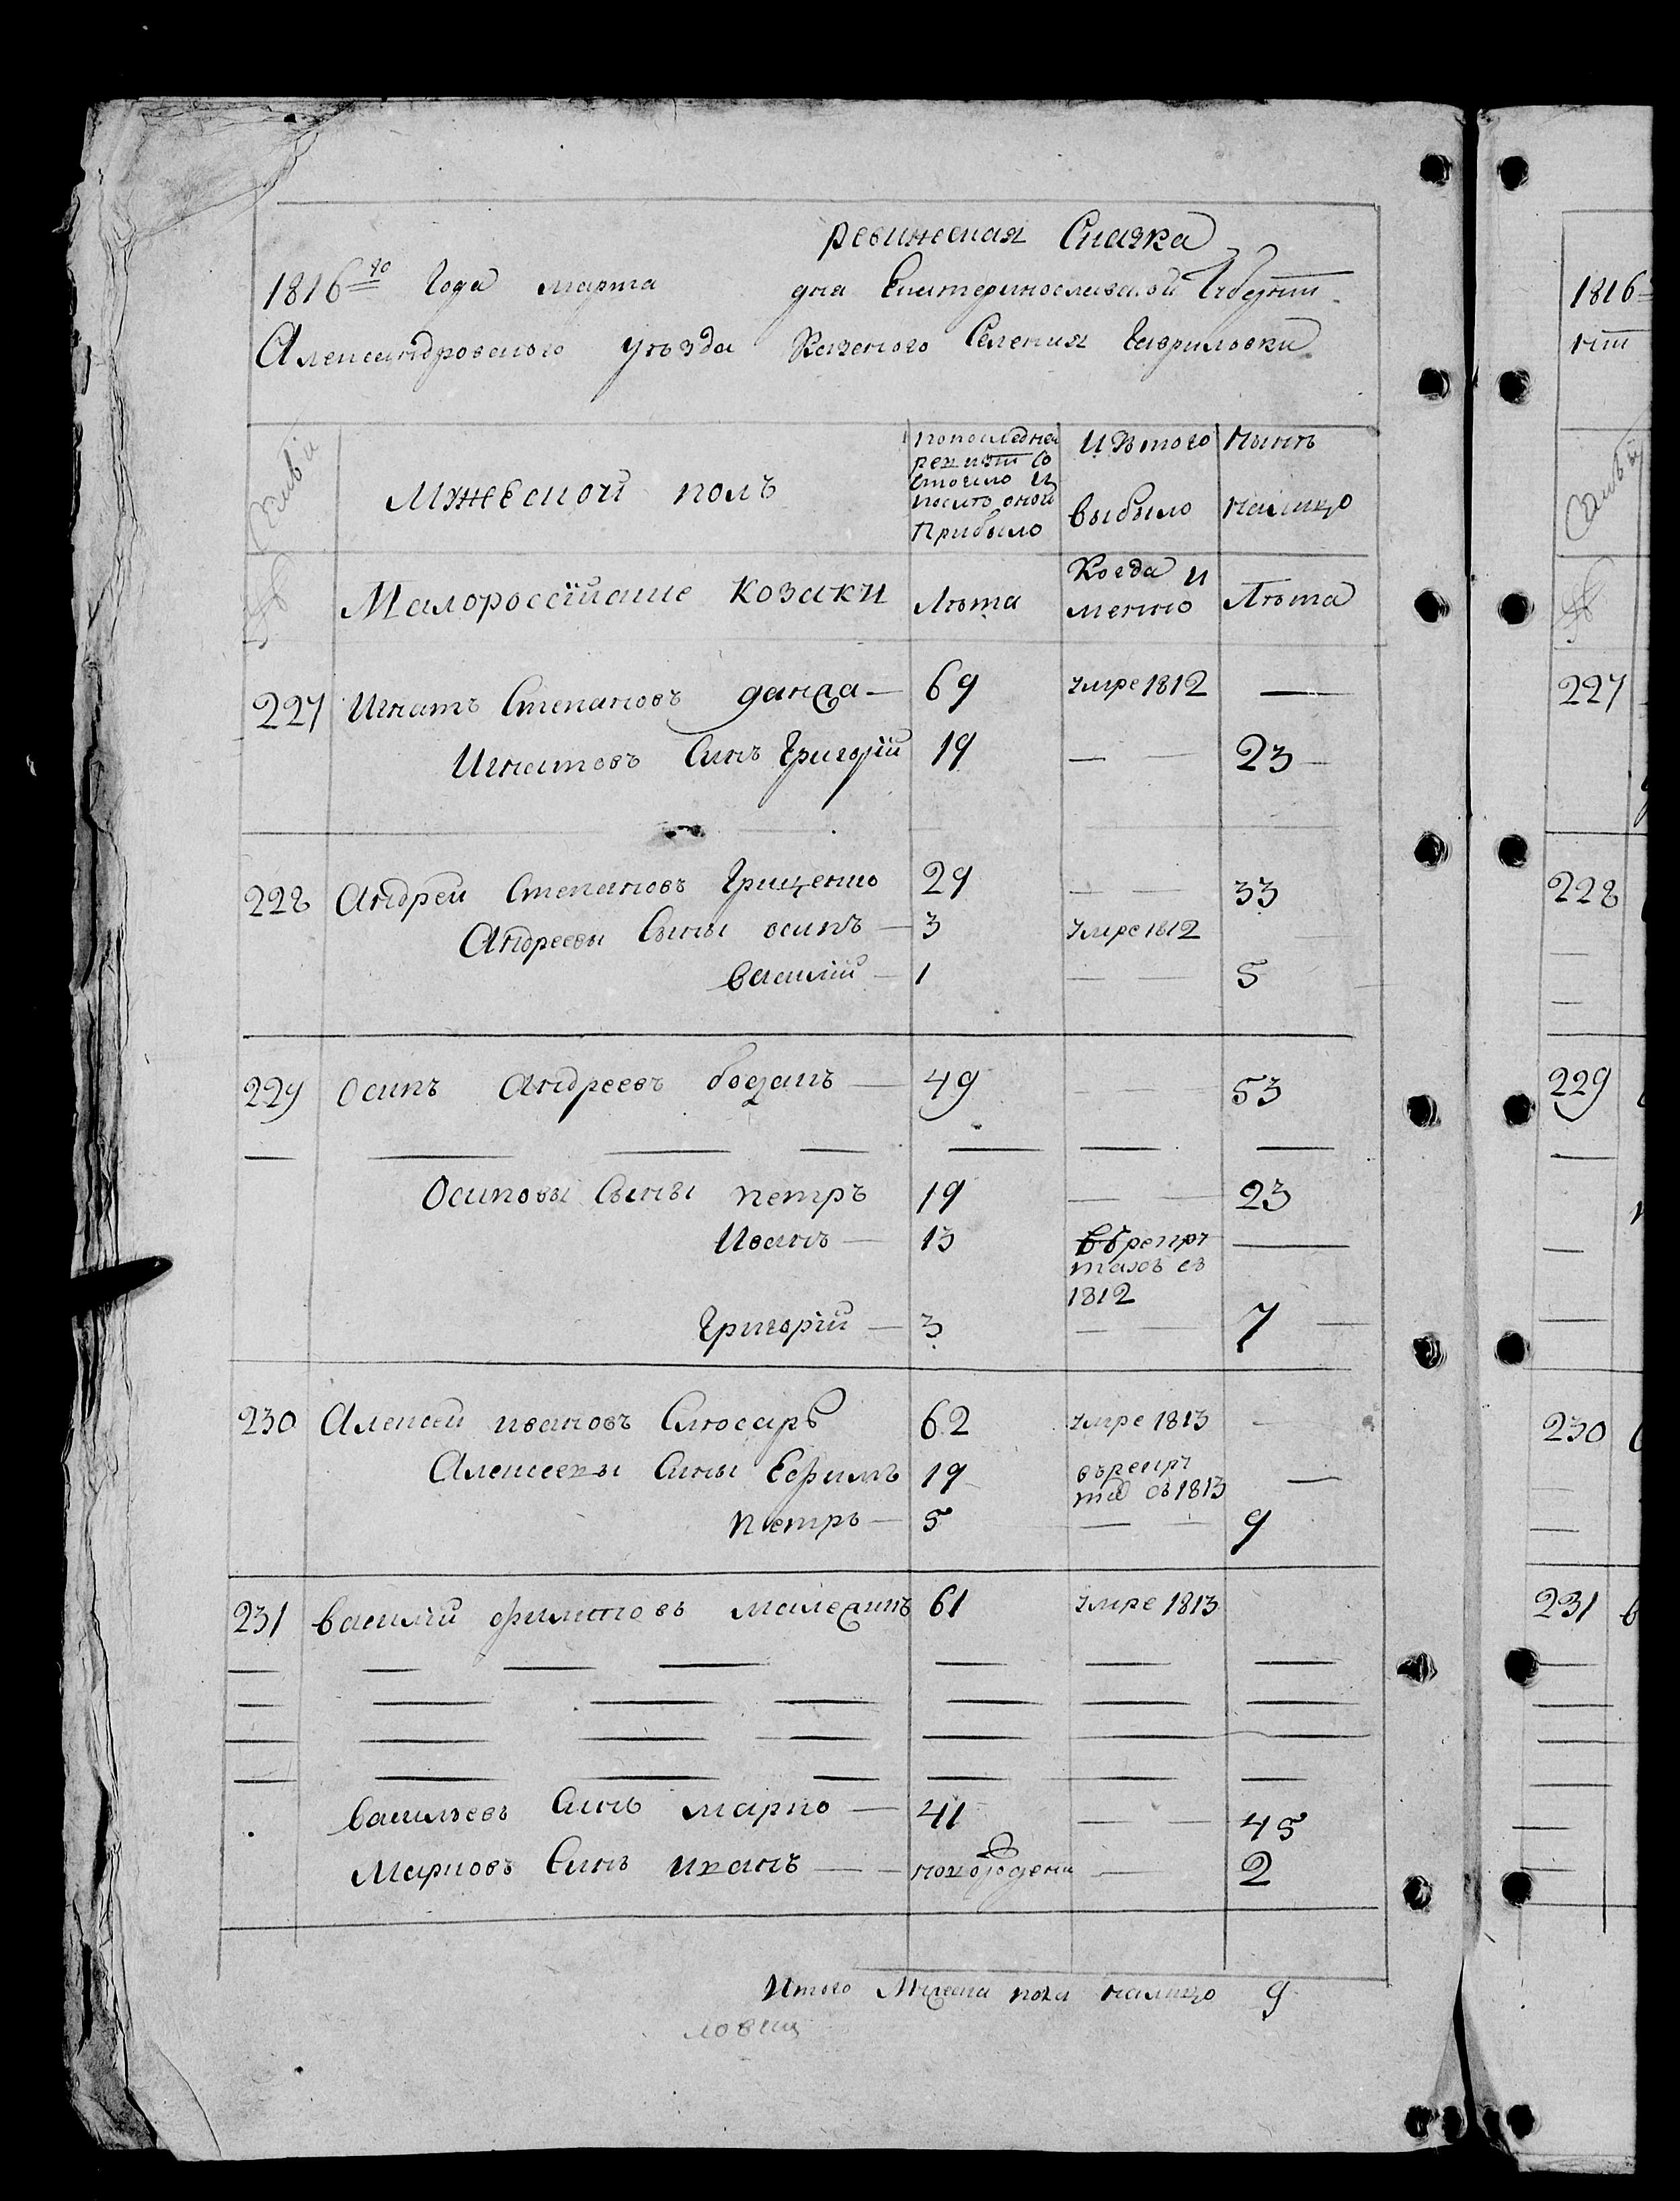 ревижская Сказка
1816го Года марта дня Екатеринославской Губернии
Александровского уѣзда Казеного Селения Гавриловки
Семьи
Мужеской полъ
по последней
ревизіи со
стояло и
послѣ оной
Прибыло
Изъ того
выбыло
Нынѣ
налицо
№
Малороссійские козаки
Лѣта
Когда и
менно
Лѣта
227 Игнатъ Степановъ 69 умре 1812 —
Игнатовъ Синъ Григорій 19 — — 23
228 Андрей Степановъ Грищенко 29 — — 33
Андреевы Сыны осипъ — 3 умре 1812
василій — 1 — — 5
229 Осипъ Андреевъ — 49 — — 53
Осиповы Сыны петръ 19 — — 23
Иванъ — 13 въ рекру —
тахъ съ
1812
Григорій — 3 — — 7 —
230 Алексей ивановъ Слюсарь 62 умре 1813 —
Алексеевы Сины Ефимъ 19 въ рекру —
та съ 1813
петръ — 5 — — 9
231 василій филиповъ 61 умре 1813
васильевъ Синъ марко — 41 — — 45
Марковъ Синъ иванъ — — новорожденъ — 2
Итого Мужеска пола налицо 9
1816
227
228
229
230
231